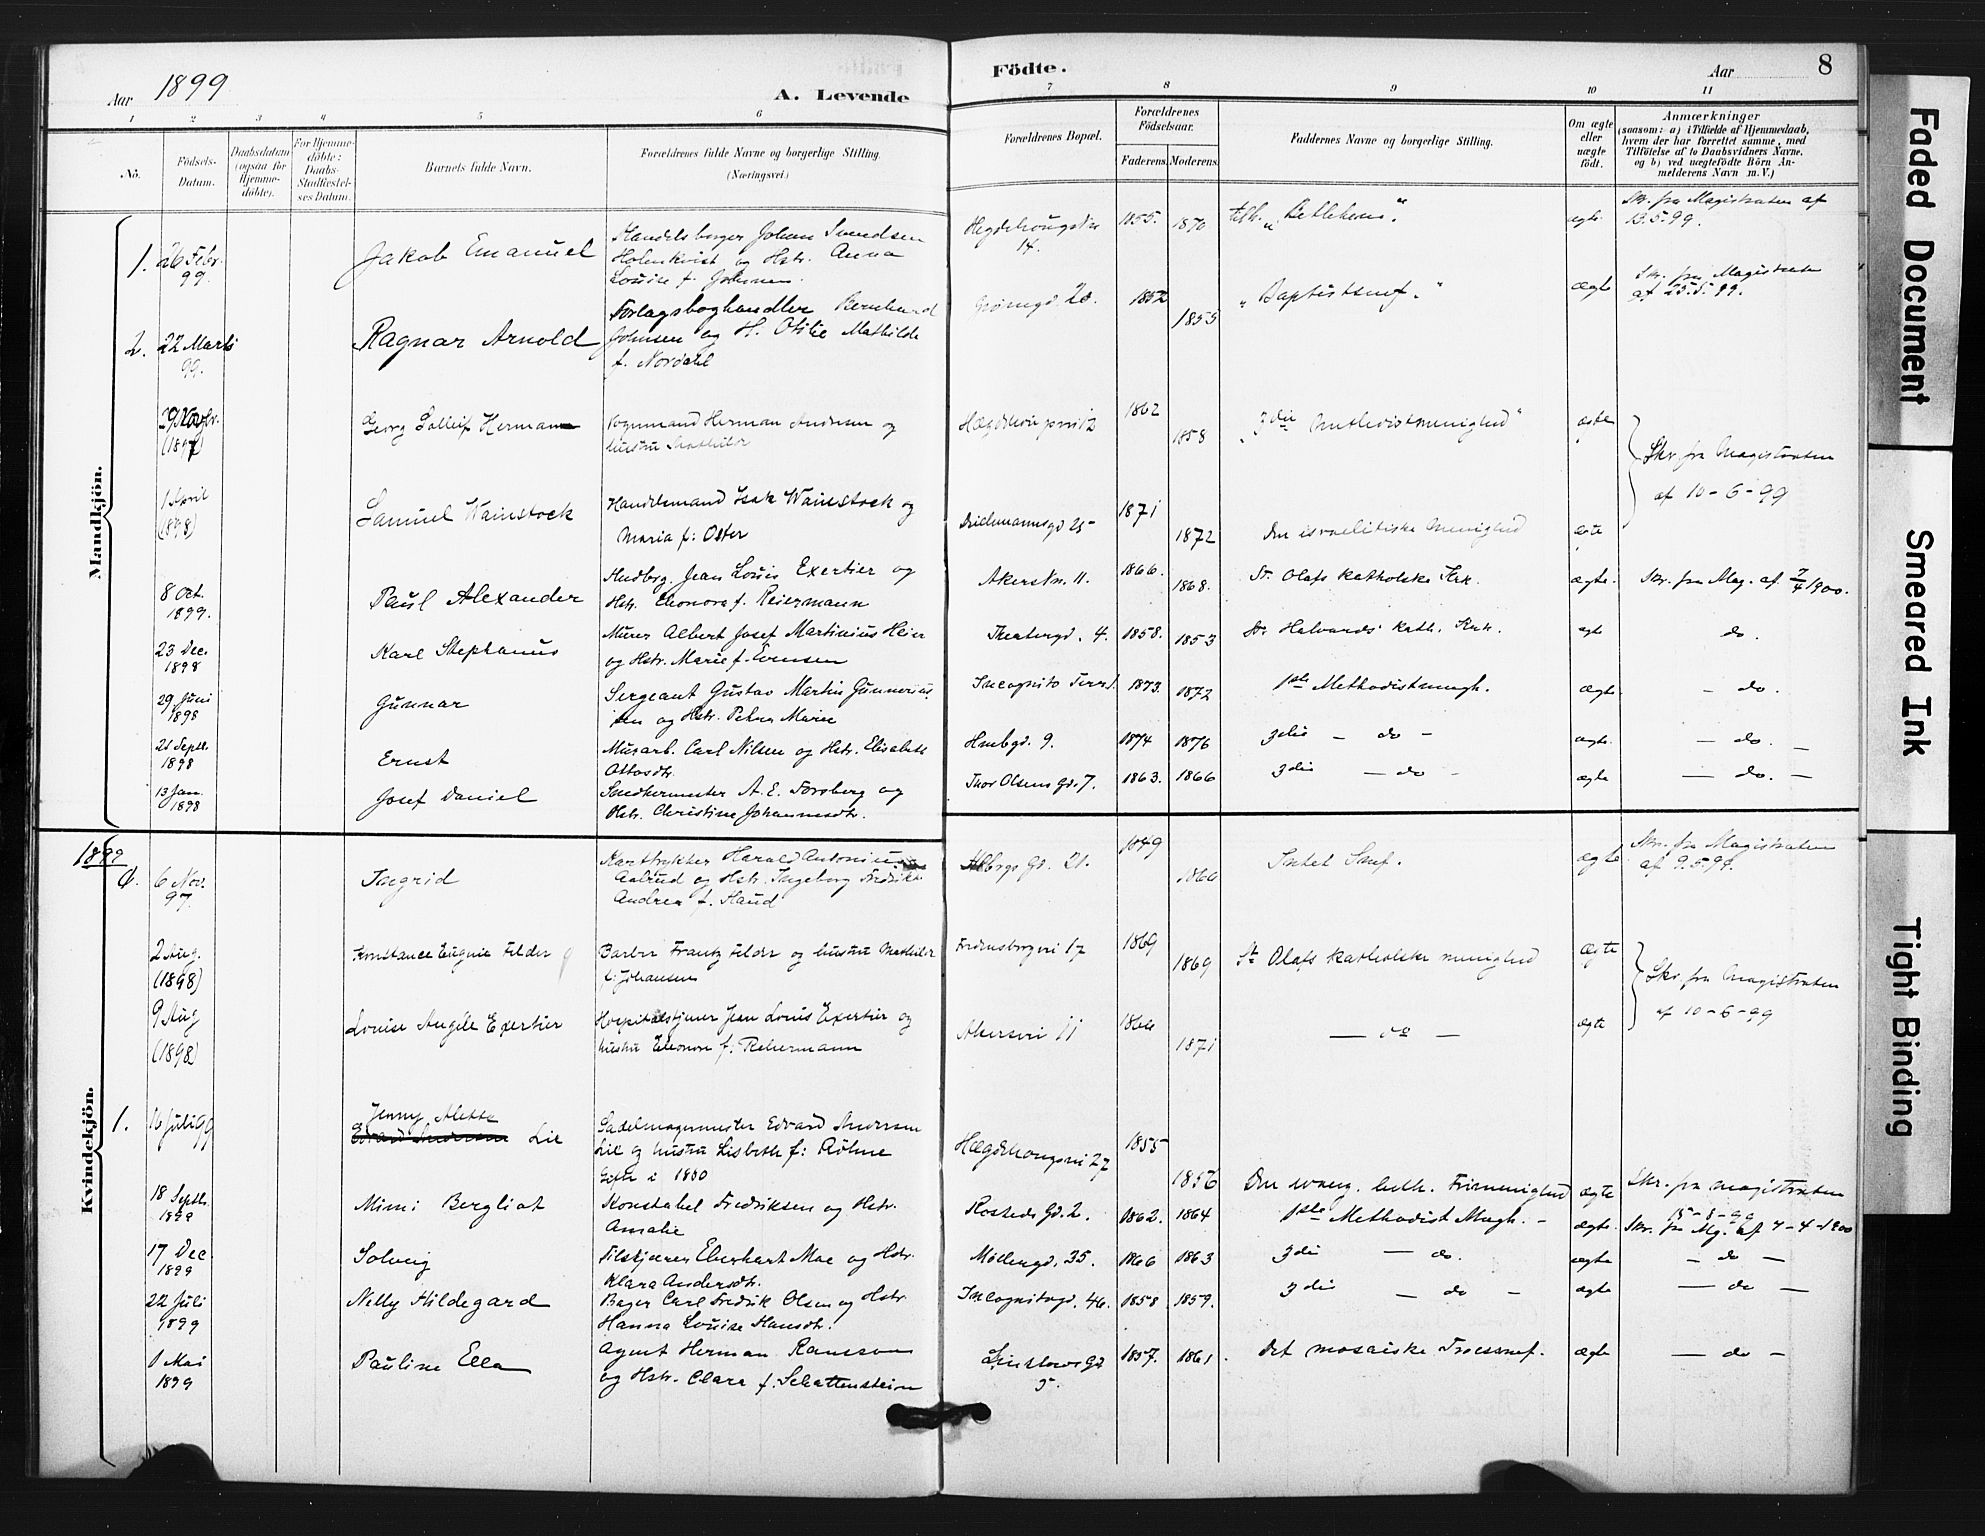 Aar 1899
A. Levende
Födte.
Aar
8
1 2 3 4 5 6 7 8 9 10 11
No.
Födsels-
Datum.
Daabsdatum
(ogsaa for
Hjemme-
döbte).
For Hjemme-
döbte:
Daabs-
Stadfæstel-
ses Datum.
Barnets fulde Navn.
Forældrenes fulde Navne og borgerlige Stilling.
(Næringsvei.)
Forældrenes Bopæl.
Forældrenes
Födselsaar.
Faderens.
Moderens.
Faddernes Navne og borgerlige Stilling.
Om ægte
eller
uægte
födt.
Anmærkninger
(saasom: a) i Tilfælde af Hjemmedaab,
hvem der har forrettet samme, med
Tilföielse af to Daabsvidners Navne,
og b) ved uægtefödte Börn An-
melderens Navn m. V.)
Mandkjön.
1. 26 Febr.
99.
Jakob Emanuel
Handelsborger Johan Svendsen
Holmkvist og Hstr. Anna
Louise f. Johnsen.
14.
1855. 1870
tilh. „Bethlehem“
ægte
Skr. fra Magistraten af
13.5.99.
2. 22 Marts
99.
Ragnar Arnold
Forlagsboghandler Bernhard
Johnsen og H. Otilie Mathilde
f. Nordahl
20. 1852
1855
„Baptistsmf.“
ægte
Skr. fra Magistraten
af 25.5.99.
29 Novbr.
Georg Hermann
Herman Andersen og
hustru Mathilde
1862
1858
„3die Methodistmenighed“
ægte
Skr. fra Magistraten
af 10-6-99
1 April
(1898)
Samuel Wainstock
Handelsmand Isak Wainstock og
Maria f: Oster
Deichmannsgd 25
1871
1872
Den israelitiske Menighed
ægte
8 Oct.
1899.
Paul Alexander
Hndborg. Jean Louis Exertier og
Hstr. Eleonora f. Reiermann
Akersvn. 11.
1866.
1868.
St. Olafs katholske Krk.
ægte.
Skr. fra Mag. af 7/4 1900.
23 Dec.
1898
Karl Stephanus
Murer Albert Josef Martinius Heier
og Hstr. Marie f. Evensen
Theatergd. 4.
1858. 1853
St. Halvards kath. Krk.
ægte
do.
29 Juni
1898
Gunnar
Sergeant Gustav Martin Gunnerius
sen og Hstr. Petra Marie
Incognito Terrd.
1873. 1872
1ste Methodistmngh.
ægte
— do.
21 Septr.
1898
Ernst
Murarb. Carl Nilsen og Hstr. Elisabeth
Ottosdtr.
9.
1874 1876
3die — do —
ægte.
— do. —
13 Jan.
1898
Josef Daniel
Snedkermester A. E. Forsberg og
Hstr. Christine Johannesdtr.
Thor Olsens Gd. 7.
1863. 1866
3die — do —
ægte
— do. —
Kvindekjön.
1899
6 Nov.
97.
Ingrid
Harald Antonius
og Hstr. Ingeborg Fredrikke
Andrea f. Haud
Gd. 21.
1849
1860
Intet Smf.
ægte
Skr. fra Magistraten
af 9.5.99.
2 Aug.
(1898)
Konstance Eugenie Felder
Barber Frantz Felder og hustru Mathilde
f: Johansen
Fredensborgvei 17
1869
1869
St Olafs katholske menighed
ægte
Skr. fra Magistraten
af 10-6-99
9 Aug
(1898)
Louise Angéle Exertier
Hospitalstjener Jean Louis Exertier og
hustru Eleonore f: Rehermann
Akersvei 11
1866
1871
— do —
ægte
1. 16 Juli 99
Jenny Alette
Edvard Andersen Lie
Sadelmagermester Edvard Andersen
Lie og hustru Lisbeth f: Röhne
Gifte i 1880
Hægdehaugsvei 27
1855
1856
Den evang. luth. Frimenighed
ægte
Skr. fra magistraten
15-8-99
18 Septbr.
1899
Mimi Bergliot
Konstabel Fredriksen og Hstr.
Amalie
Rosteds Gd. 2.
1862. 1864
1ste Methodist Mngh. —
ægte.
Skr. fra Mg. af 7-4-1900
17 Dec
1899
Solveig
Filskjærer Eberhart Moe og Hstr.
Klara Andersdtr.
Möllergd. 35.
1866 1863
3die — do.
ægte
— do —
22 Juli
1899
Nelly Hildegard
Bager Carl Fredrik Olsen og Hstr.
Hanna Louise Hansdtr.
Incognitogd. 46.
1858 1859.
3die — do —
ægte
— do —
1 Mai
1899
Pauline Ella
Agent Herman Ransson
og Hstr. Clara f. Schattenstein
Linstows Gd
5.
1857. 1861.
Det mosaiske Troessmf.
ægte
— do —
Faded Document
Smeared Ink
Tight Binding